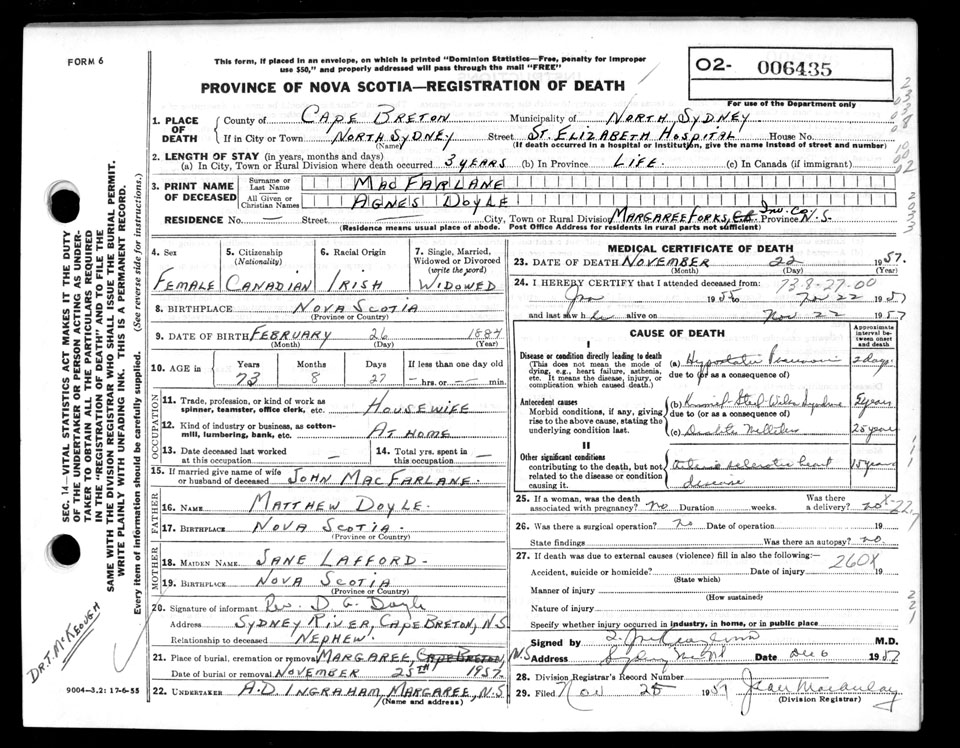 FORM 6
This form, if placed in an envelope, on which is printed "Dominion Statistics—Free, penalty for improper
use $50," and properly addressed will pass through the mail "FREE"
PROVINCE OF NOVA SCOTIA—REGISTRATION OF DEATH
O2- 006435
For use of the Department only
1. PLACE OF DEATH
County of CAPE BRETON Municipality of NORTH SYDNEY
If in City or Town NORTH SYDNEY Street ST. ELIZABETH HOSPITAL House No.
(Name) (If death occurred in a hospital or institution, give the name instead of street and number)
2. LENGTH OF STAY (in years, months and days)
(a) In City, Town or Rural Division where death occurred 3 YEARS (b) In Province LIFE. (c) In Canada (if immigrant)
3. PRINT NAME OF DECEASED
Surname or Last Name MACFARLANE
All Given or Christian Names AGNES DOYLE
RESIDENCE No. — Street — City, Town or Rural Division MARGAREE FORKS, C.B. Inv. Co. Province N.S.
(Residence means usual place of abode. Post Office Address for residents in rural parts not sufficient)
4. Sex FEMALE
5. Citizenship (Nationality) CANADIAN
6. Racial Origin IRISH
7. Single, Married, Widowed or Divorced (write the word) WIDOWED
8. BIRTHPLACE NOVA SCOTIA
(Province or Country)
9. DATE OF BIRTH FEBRUARY 26 1884
(Month) (Day) (Year)
10. AGE in Years 73 Months 8 Days 27 If less than one day old — hrs. or — min.
OCCUPATION
11. Trade, profession, or kind of work as spinner, teamster, office clerk, etc. HOUSEWIFE
12. Kind of industry or business, as cotton-mill, lumbering, bank, etc. AT HOME
13. Date deceased last worked at this occupation —
14. Total yrs. spent in this occupation —
15. If married give name of wife or husband of deceased JOHN MACFARLANE.
FATHER
16. NAME MATTHEW DOYLE.
17. BIRTHPLACE NOVA SCOTIA
(Province or Country)
MOTHER
18. MAIDEN NAME JANE LAFFORD-
19. BIRTHPLACE NOVA SCOTIA
(Province or Country)
20. Signature of informant Rev. D G. Doyle
Address SYDNEY RIVER, CAPE BRETON, N.S.
Relationship to deceased NEPHEW.
21. Place of burial, cremation or removal MARGAREE, CAPE BRETON, N.S
Date of burial or removal NOVEMBER 25TH 1957.
22. UNDERTAKER A.D. INGRAHAM, MARGAREE, N.S
(Name and address)
MEDICAL CERTIFICATE OF DEATH
23. DATE OF DEATH NOVEMBER 22 1957.
(Month) (Day) (Year)
24. I HEREBY CERTIFY that I attended deceased from: 73-8-27-00
Jan 1955 to Nov 22 1957
and last saw h er alive on Nov 22 1957
CAUSE OF DEATH
Approximate interval between onset and death
I
Disease or condition directly leading to death
(This does not mean the mode of dying, e.g., heart failure, asthenia, etc. It means the disease, injury, or complication which caused death.)
(a) Hypostatic Pneumonia 2 days
due to (or as a consequence of)
Antecedent causes
Morbid conditions, if any, giving rise to the above cause, stating the underlying condition last.
(b) Kimmel-Steil-Wilson Syndrome 5 years
due to (or as a consequence of)
(c) Diabetes Mellitus 25 years
II
Other significant conditions
contributing to the death, but not related to the disease or condition causing it.
arteriosclerotic heart disease 15 years
25. If a woman, was the death associated with pregnancy? no Duration weeks. Was there a delivery? no
26. Was there a surgical operation? no Date of operation 19
State findings Was there an autopsy? no.
27. If death was due to external causes (violence) fill in also the following:— 260X
Accident, suicide or homicide? Date of injury 19
(State which)
Manner of injury
(How sustained)
Nature of injury
Specify whether injury occurred in industry, in home, or in public place
Signed by M.D.
Address Date Dec 6 1957
28. Division Registrar's Record Number
29. Filed Nov 25 1957 Jean Macaulay
(Division Registrar)
SEC. 14—VITAL STATISTICS ACT MAKES IT THE DUTY
OF THE UNDERTAKER OR PERSON ACTING AS UNDER-
TAKER TO OBTAIN ALL THE PARTICULARS REQUIRED
IN THE "REGISTRATION OF DEATH" AND TO FILE THE
SAME WITH THE DIVISION REGISTRAR WHO SHALL ISSUE THE BURIAL PERMIT.
WRITE PLAINLY WITH UNFADING INK. THIS IS A PERMANENT RECORD.
Every item of information should be carefully supplied. (See reverse side for instructions.)
DR. T. MCKEOUGH
9004—3.2: 17-6-55